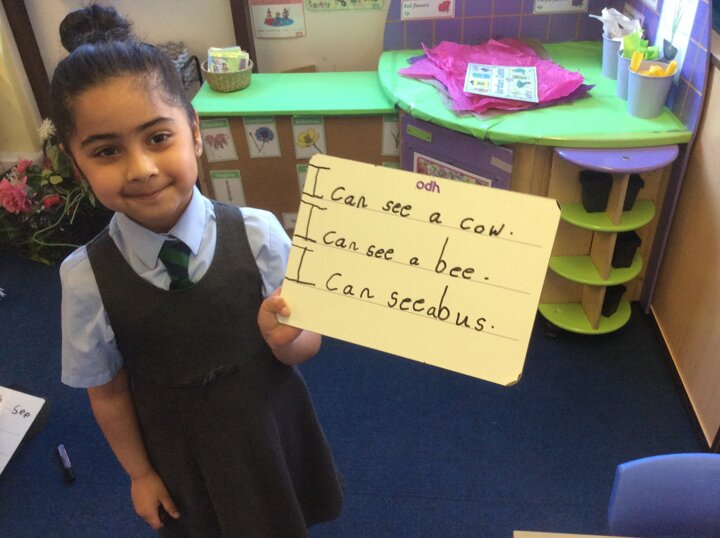 odh
I can see a cow.
I can see a bee.
I can seeabus.
see